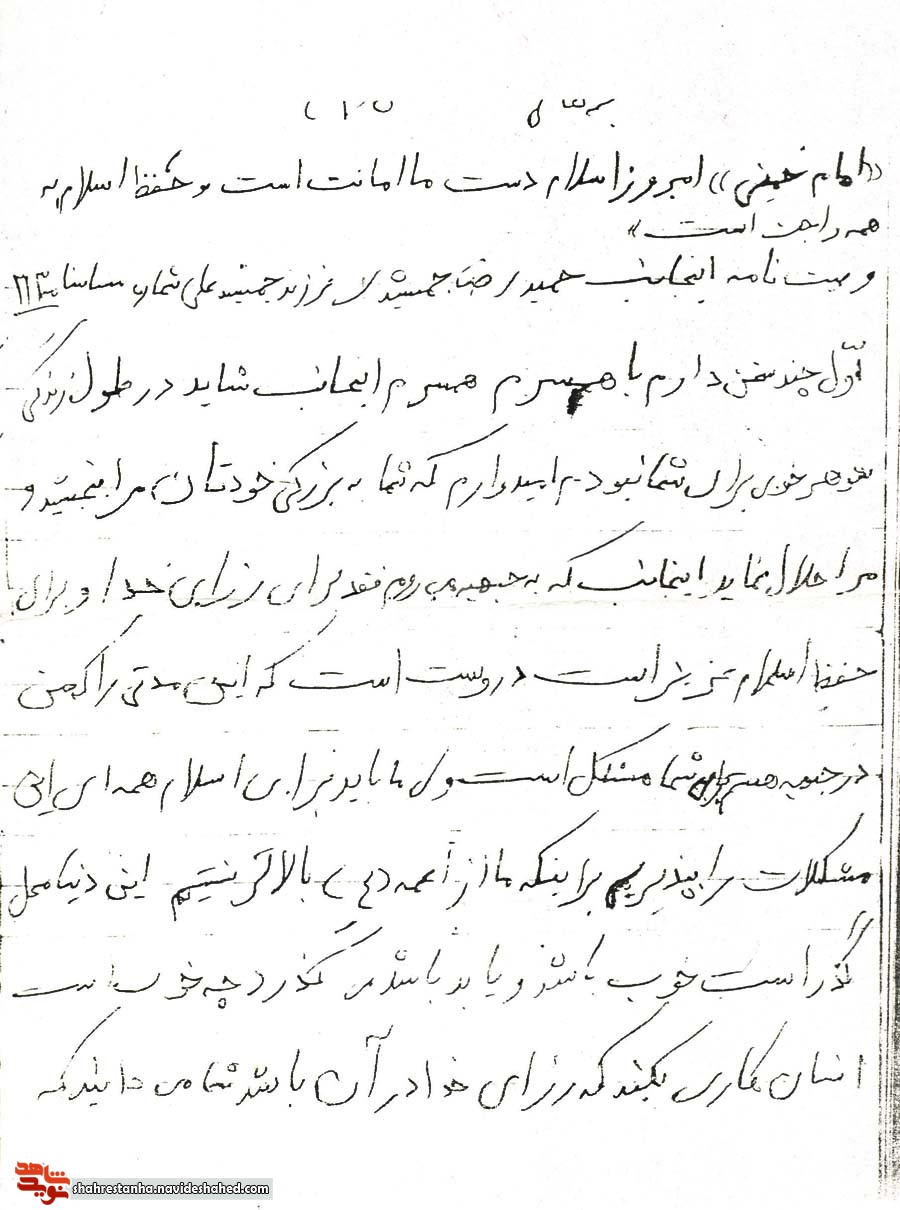 «امام خمینی» امروز اسلام دست ما امانت است و حفظ اسلام به
همه واجب است»
وصیت نامه اینجانب حمید رضا جمشیدی فرزند جمشید علی شماره شناسنامه
اول چند سخن دارم با همسرم همسرم اینجانب شاید در طول زندگی
شوهر خوبی برای شما نبودم امیدوارم که شما به بزرگی خودتان مرا ببخشید و
مرا حلال نماید اینجانب که به جبهه می روم فقد برای رزای خدا و برای
حفظ اسلام عزیز است دروست است که این مدتی را که من
در جبهه هستم برای شما مشکل است ولی ما باید برای اسلام همه ای این
مشکلات را بپذیریم براینکه ما از أعمه (ع) بالاتر نیستیم این دنیا محل
گذر است خوب باشد و یا بد باشد می گذرد چه خوب است
انسان کاری بکند که رزای خدا در آن باشد شما می دانید که
شاهد
نوید
shahrestanha.navideshahed.com